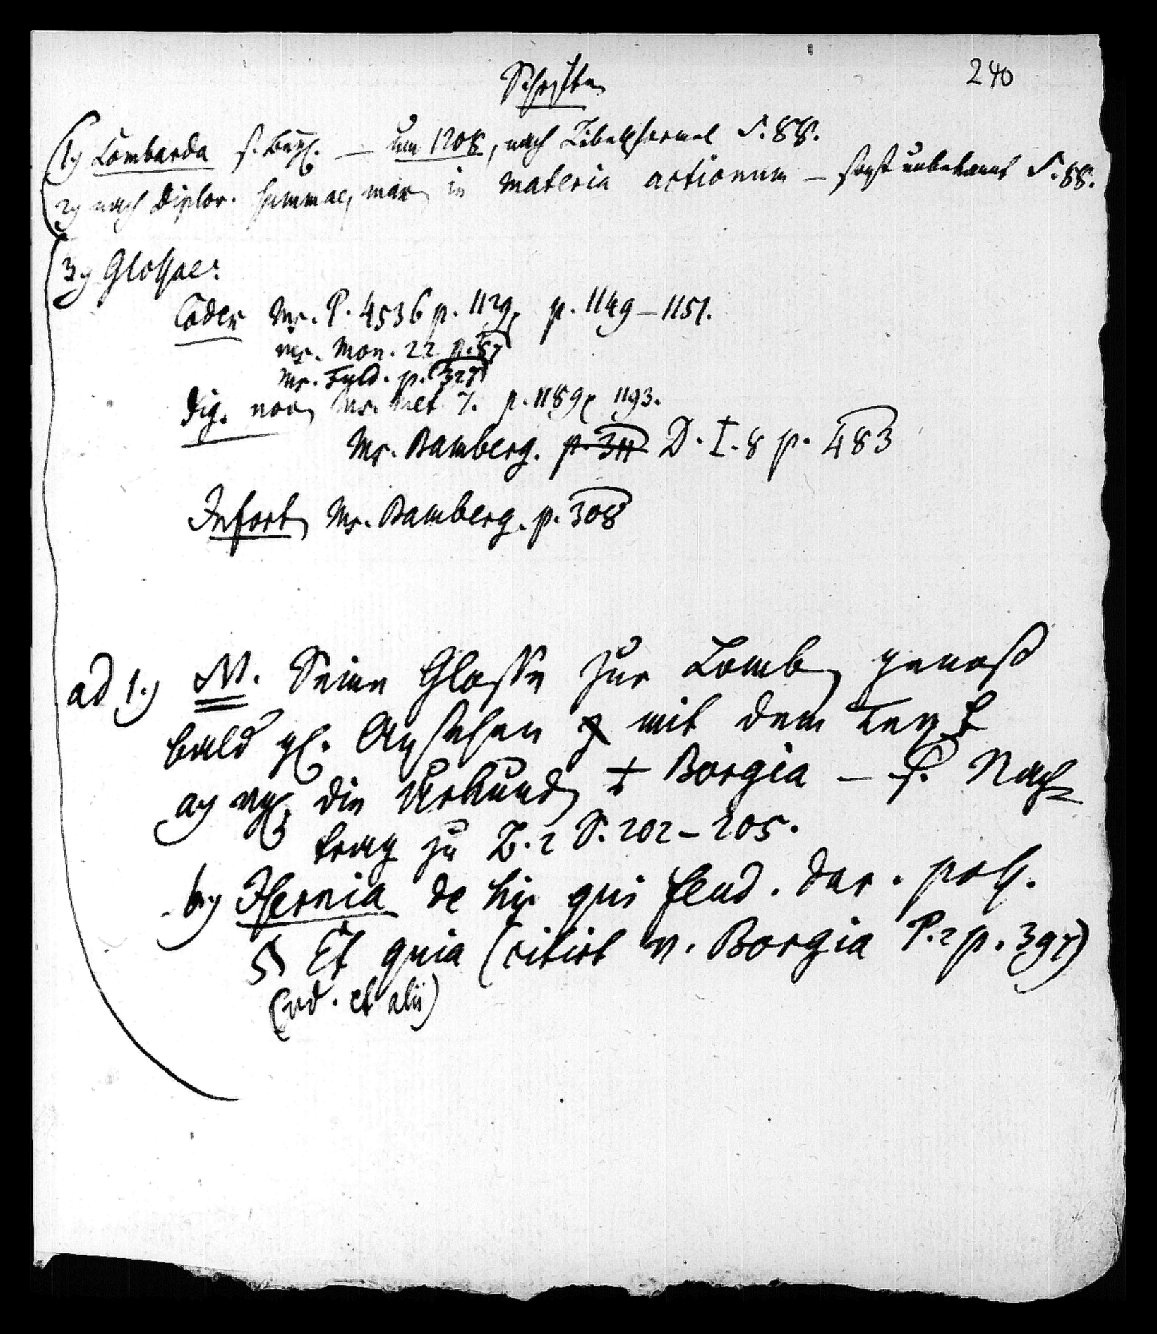 Schriften 240
1) Lombarda s. – um 1208, nach Libellformel S. 88.
2) nach Diplov. Summae, war in materia actionum – sonst unbekannt S. 88.
3) Glossae:
Codex Ms. P. 4536 p. 1129, p. 1149–1151.
Ms. Mon. 22 p. 87
Ms. Fuld. p. 327
Dig. nov. Ms. Met. 7. p. 1189, 1193.
Ms. Bamberg. p. 311 D. I. 8 p. 483
Infort. Ms. Bamberg. p. 308
ad 1.) N. Seine Glosse zur Lomb. genoß
bald gl. Ansehen mit dem Text
a) vgl. die Urkunde + Borgia – S. Nach=
trag zu B. 2 S. 202–205.
b) Isernia de his qui feud. dar. poss.
§ Et quia (citirt v. Borgia P. 2 p. 397)
(ad. et alii)